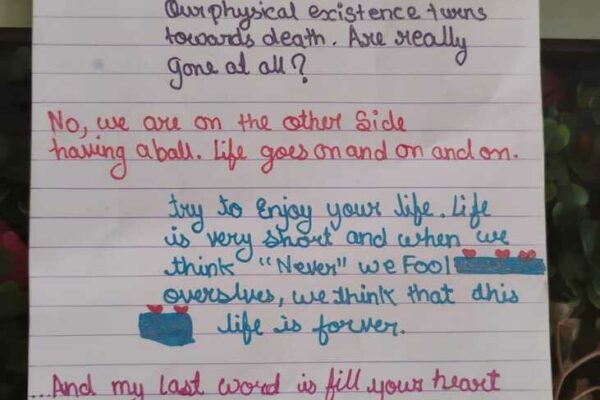 Our physical existence turns
towards death. Are really
gone at all?
No, we are on the other Side
having a ball. Life goes on and on and on.
try to Enjoy your life. Life
is very short and when we
think "Never" we Fool
overslves, we think that this
life is forver.
...And my last word is fill your heart